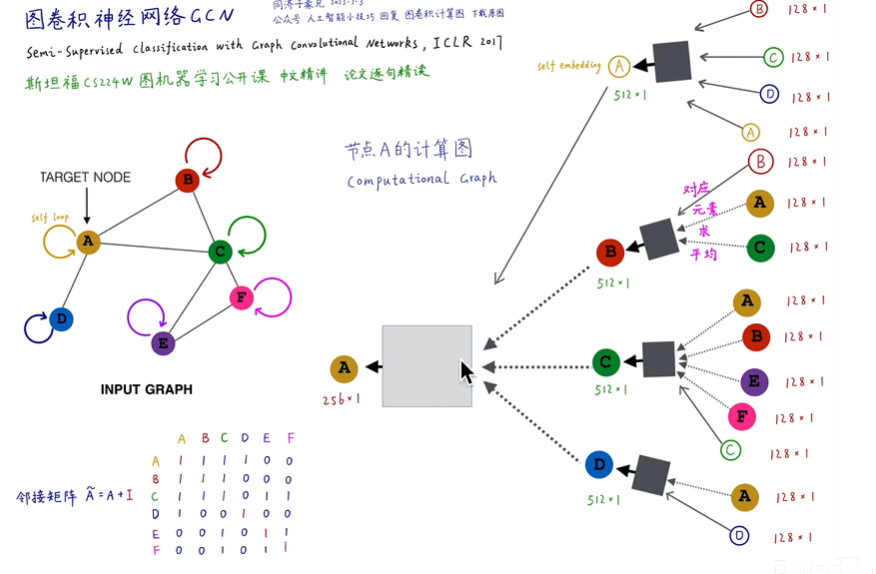 图卷积神经网络GCN
公众号 人工智能小技巧 回复 图卷积计算图 下载原图
Semi-Supervised Classification with Graph Convolutional Networks, ICLR 2017
斯坦福CS224W图机器学习公开课 中文精讲 论文逐句精读
节点A的计算图
Computational Graph
TARGET NODE
self loop
A
B
C
D
E
F
INPUT GRAPH
邻接矩阵 Ã=A+I
A B C D E F
A 1 1 1 1 0 0
B 1 1 1 0 0 0
C 1 1 1 0 1 1
D 1 0 0 1 0 0
E 0 0 1 0 1 1
F 0 0 1 0 1 1
A
256×1
self embedding A
512×1
B 128×1
C 128×1
D 128×1
A 128×1
B
512×1
对应
元素
求
平均
B 128×1
A 128×1
C 128×1
C
512×1
A 128×1
B 128×1
E 128×1
F 128×1
C 128×1
D
512×1
A 128×1
D 128×1